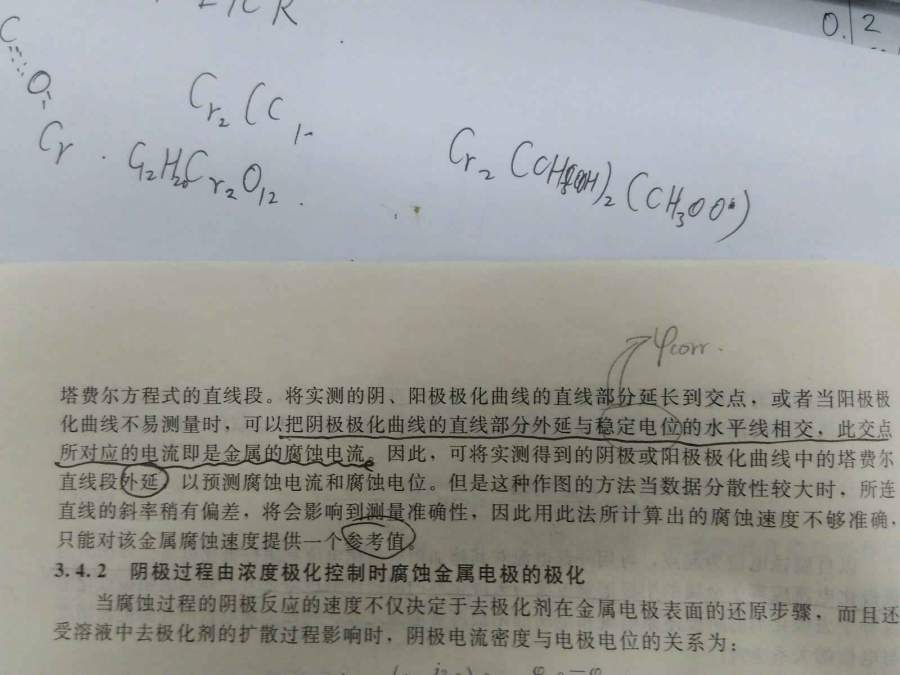 0.12
C
O
Cr₂(C
Cr
C₂H₂₀Cr₂O₁₂
Cr₂(CH₃COOH)₂(CH₃OO
φcorr.
塔费尔方程式的直线段。将实测的阴、阳极极化曲线的直线部分延长到交点，或者当阳极极
化曲线不易测量时，可以把阴极极化曲线的直线部分外延与稳定电位的水平线相交，此交点
所对应的电流即是金属的腐蚀电流。因此，可将实测得到的阴极或阳极极化曲线中的塔费尔
直线段外延，以预测腐蚀电流和腐蚀电位。但是这种作图的方法当数据分散性较大时，所连
直线的斜率稍有偏差，将会影响到测量准确性，因此用此法所计算出的腐蚀速度不够准确，
只能对该金属腐蚀速度提供一个参考值。
3.4.2 阴极过程由浓度极化控制时腐蚀金属电极的极化
当腐蚀过程的阴极反应的速度不仅决定于去极化剂在金属电极表面的还原步骤，而且还
受溶液中去极化剂的扩散过程影响时，阴极电流密度与电极电位的关系为：